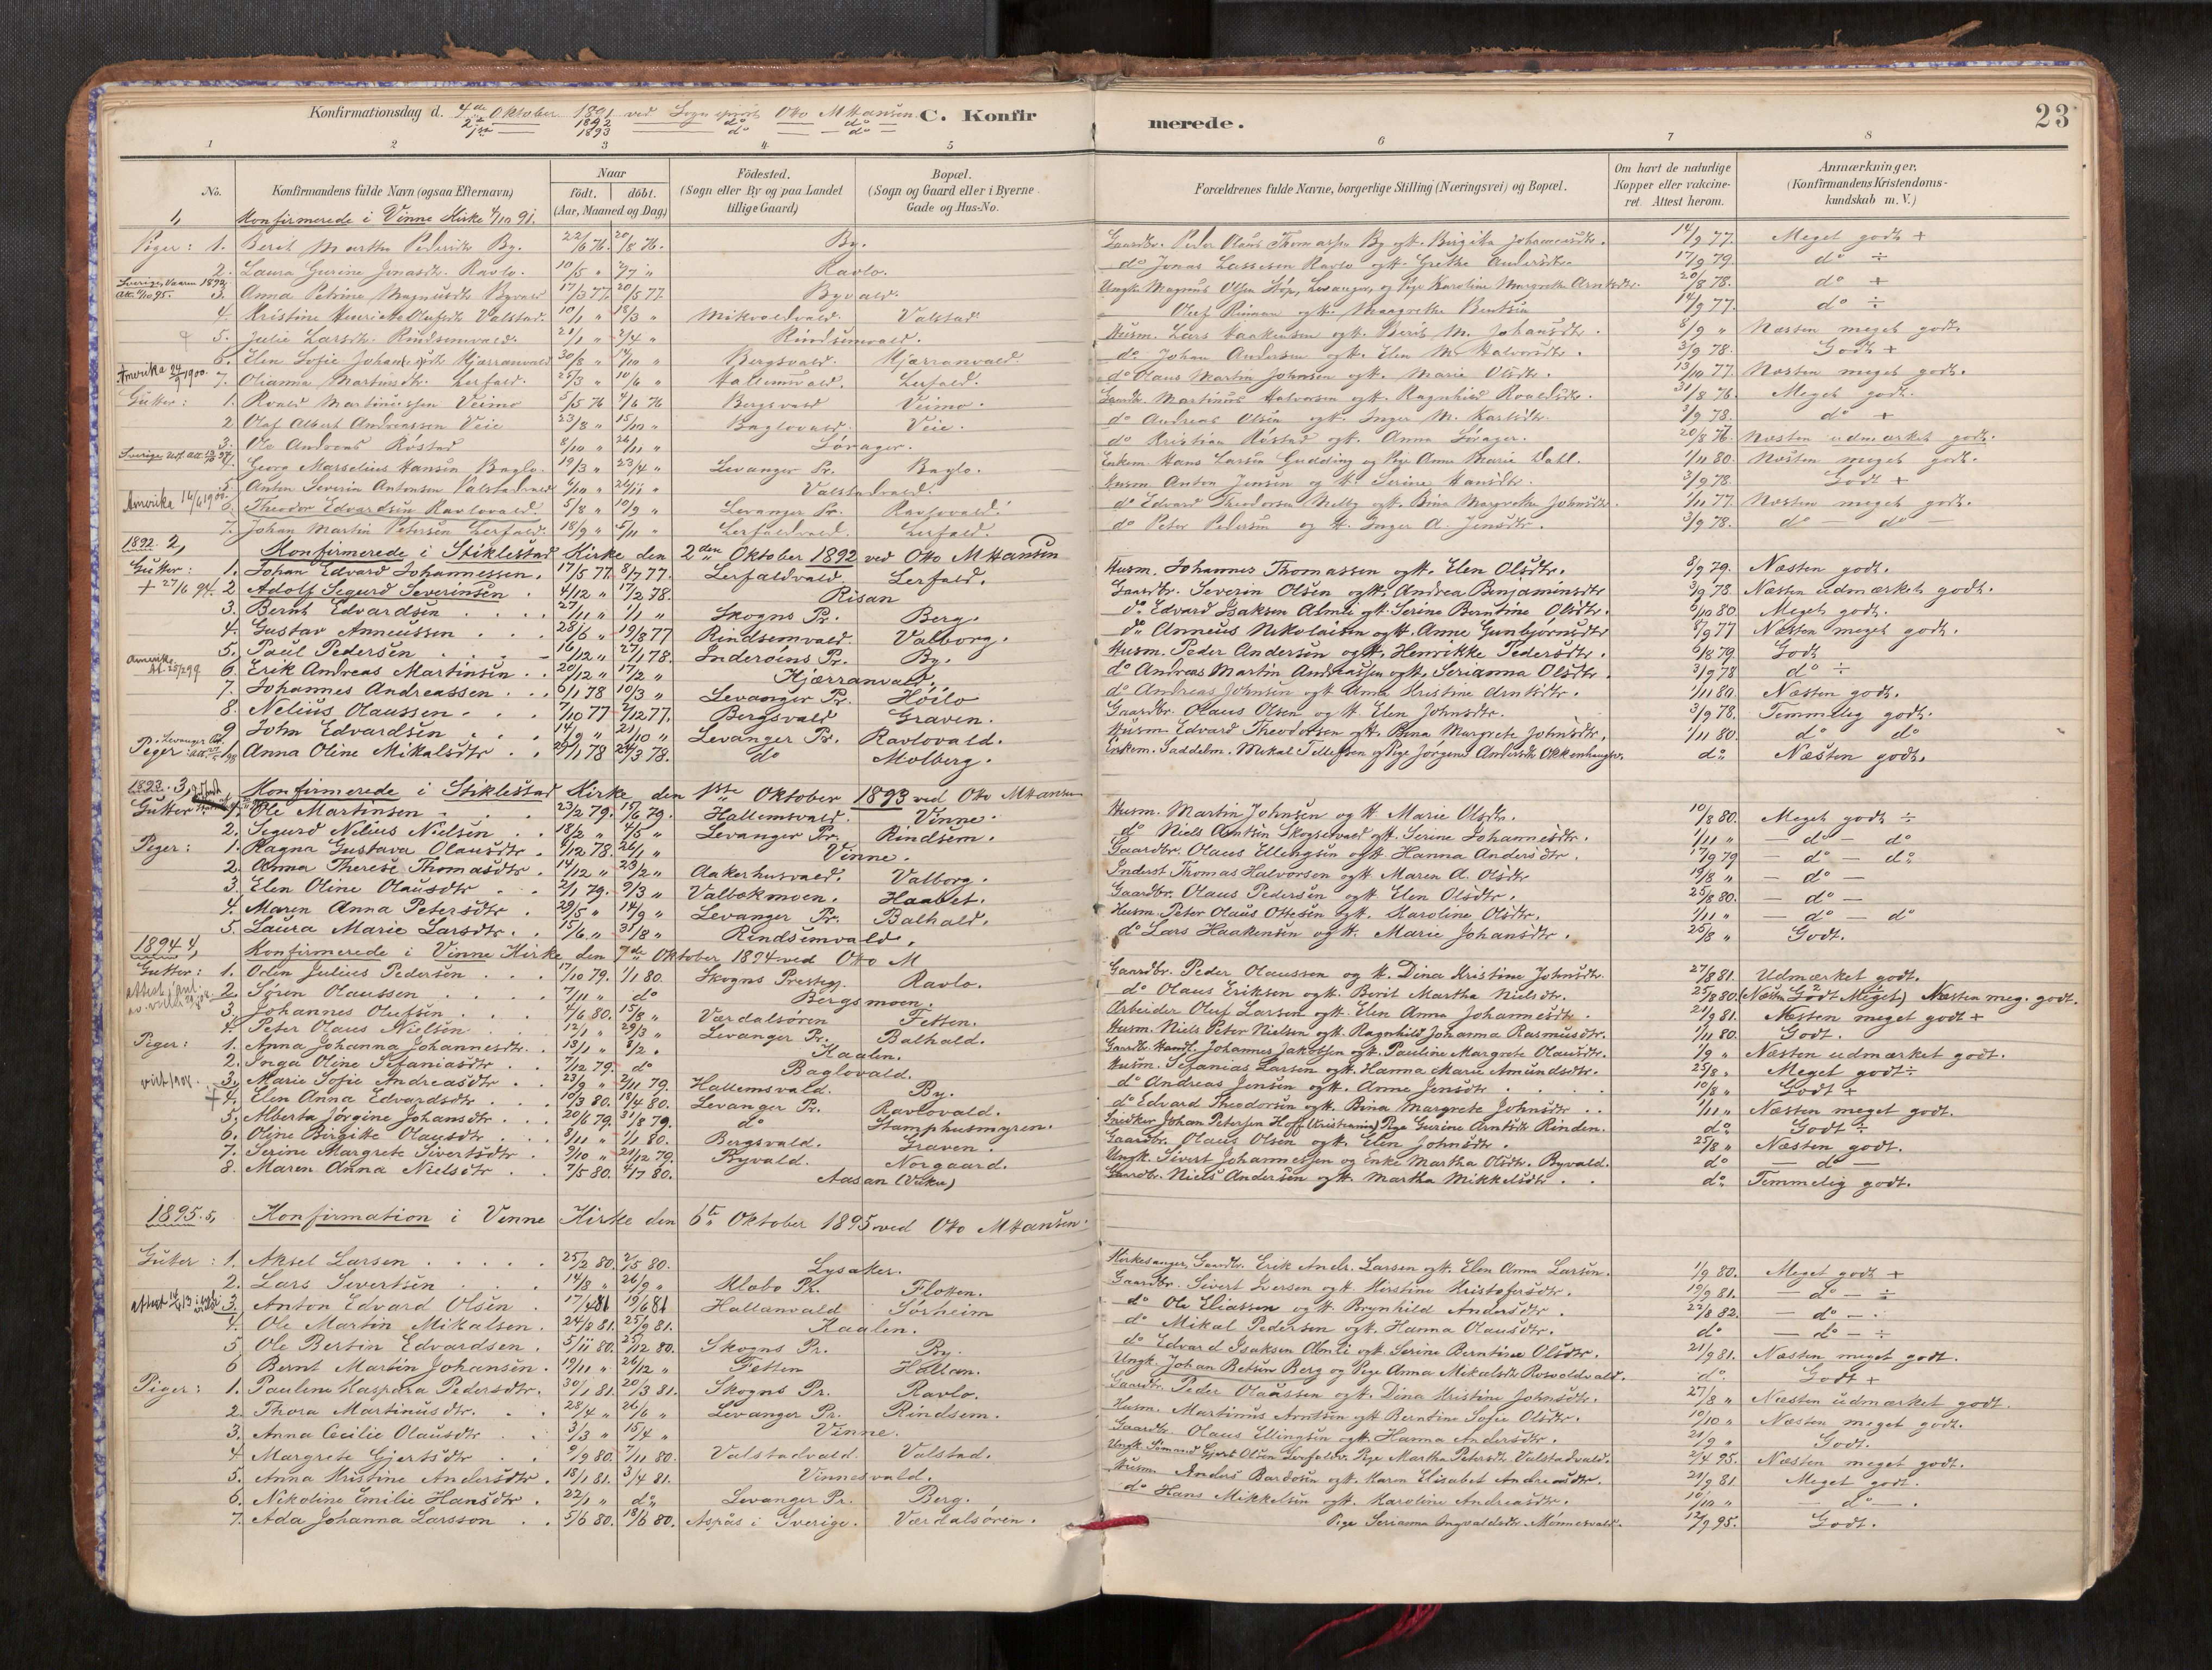 Konfirmationsdag d. 4de Oktober 1891 ved Sognepræst Otto M Hansen C. Konfirmerede. 23
2den — 1892 — do — do —
1ste — 1893 — do — do —
1 2 3 4 5 6 7 8
No. Konfirmandens fulde Navn (ogsaa Efternavn) Naar født, døbt. (Aar, Maaned og Dag) Fødested. (Sogn eller By og paa Landet tillige Gaard) Bopæl. (Sogn og Gaard eller i Byerne Gade og Hus-No. Forældrenes fulde Navne, borgerlige Stilling (Næringsvei) og Bopæl. Om havt de naturlige Kopper eller vakcineret. Attest herom. Anmærkninger. (Konfirmandens Kristendomskundskab m. V.)
1, Konfirmerede i Vinne Kirke 4/10 91.
Piger: 1. Berit Martha Pedersdtr By. 22/6 76. 20/8 76. By. Gaardbr. Peder Olaus Thomassen By og H. Birgitta Johannesdtr. 14/9 77. Meget godt +
2. Laura Gurine Jonasdtr. Ravlo. 10/5 " 2/7 " Ravlo. do Jonas Lassesen Ravlo og H. Grethe Andersdtr. 17/9 79. do ÷
Sverige, Vaaren 1892. 3. Anna Petrina Magnusdtr Byvald 17/3 77. 20/5 77. Byvald. Ungk. Magnus Olsen Støp, Levanger, og Pige Karoline Margrethe Arntsdtr. 20/8 78. do +
4. Kristine Henriette Olufsdtr Valstad. 10/1 " 18/3 " Mikvoldvald. Valstad. Oluf Rinnan og H. Margrethe Bentsen 14/9 77. do ÷
5. Julie Larsdtr. Rindsemvald. 21/1 " 2/4 " Rindsemvald. Husm. Lars Haakensen og H. Berit M. Johansdtr. 8/9 " Næsten meget godt.
6. Elen Sofie Johansdtr Hjærranvald 30/8 " 14/10 " Bergsvald. Hjærranvald. do. Johan Andersen og H. Elen M. Halvorsdtr. 3/9 78. Godt +
Amerika 24/9 1900. 7. Olianna Martinsdtr. Lerfald. 25/3 " 10/6 " Hallemsvald. Lerfald. do Olaus Martin Johnsen og H. Marie Olsdtr. 13/10 77. Næsten meget godt.
Gutter: 1. Roald Martinussen Veimo 5/5 76 4/6 76 Bergsvald Veimo. Gaardbr. Martinus Halvorsen og H. Ragnhild Roaldsdtr. 31/8 76. Meget godt.
2. Olaf Albert Andreassen Veie 23/8 " 15/10 " Baglovald. Veie. do Andreas Olsen og H. Inger M. Karlsdtr. 3/9 78. do +
3. Ole Andreas Røstad 8/10 " 26/11 " Sørager. do Kristian Røstad og H. Anna Sørager. 20/8 76. Næsten udmærket godt.
4. Georg Marselius Hansen Baglo. 19/3 " 23/4 " Levanger Pr. Baglo. Enkem. Hans Larsen Gudding og Pige Anne Marie Dahl. 1/11 80. Næsten meget godt.
5. Anton Severin Antonsen Valstadvald 6/10 " 26/11 " Valstadvald. Husm. Anton Jensen og H. Serine Hansdtr. 3/9 78. Godt +
Amerika 16/6 1900. 6. Theodor Edvardsen Ravlovald. 5/8 " 10/9 " Levanger Pr. Ravlovald. do Edvard Theodorsen Melby og H. Bina Margrethe Johnsdtr. 1/11 77. Næsten meget godt.
7. Johan Martin Petersen Lerfald. 18/9 " 5/11 " Lerfaldvald. Lerfald. do Peter Pedersen og H. Inger A. Jensdtr. 3/9 78. do — do
1892. 2, Konfirmerede i Stiklestad Kirke den 2den Oktober 1892 ved Otto M Hansen
Gutter: 1. Johan Edvard Johannessen. 17/5 77. 8/7 77. Lerfaldvald. Lerfald. Husm. Johannes Thomassen og H. Elen Olsdtr. 8/9 79. Næsten godt.
+ 27/6 94. 2 Adolf Sigurd Severinsen. 4/12 " 17/2 78. Risan Gaardbr. Severin Olsen og H. Andrea Benjaminsdtr 3/9 78 Næsten udmærket godt.
3. Bernt Edvardsen 27/11 " 1/1 " Skogns Pr. Berg. do. Edvard Isaksen Almli og H. Serine Berntine Olsdtr. 6/10 80. Meget godt.
4. Gustav Anneussen 28/6 " 19/8 77 Rindsemvald. Valborg. do. Anneus Nikolaisen og H. Anne Gunbjørnsdtr 8/9 77 Næsten meget godt.
5. Paul Pedersen 16/12 " 27/1 78. Inderøens Pr. By. Husm. Peder Andersen og H. Henrikke Pedersdtr. 6/8 79. Godt
6. Erik Andreas Martinsen. 20/12 " 17/2 " Hjærranvald. do Andreas Martin Andreassen og H. Serianna Olsdtr. 3/9 78 do ÷
7. Johannes Andreassen. 6/1 78 10/3 " Levanger Pr. Høilo do Andreas Johnsen og H. Anna Kristine Arntsdtr. 1/11 80. Næsten godt.
8. Nelius Olaussen. 7/10 77 2/12 77. Bergsvald Graven. Gaardbr. Olaus Olsen og H. Elen Johnsdtr. 3/9 78. Temmelig godt.
9 John Edvardsen 14/9 " 21/10 " Levanger Pr. Ravlovald. Husm. Edvard Theodorsen og H. Bina Margrete Johnsdtr. 1/11 80. do do
Piger: Anna Oline Mikalsdtr. 29/1 78 24/3 78. do Molberg. Enkem. Saddelm. Mikal Tellefsen og Pige Jørgine Andersdtr Okkenhaugen. do. Næsten godt.
1893. 3, Konfirmerede i Stiklestad Kirke den 1ste Oktober 1893 ved Otto M Hansen
Gutter: 1. Ole Martinsen. 23/2 79. 15/6 79. Hallemsvald. Vinne. Husm. Martin Johnsen og H. Marie Olsdtr. 10/8 80. Meget godt ÷
2. Sigurd Nelius Nielsen 18/2 " 4/5 " Levanger Pr. Rindsem. do Niels Arntsen Skogsetvald og H. Serine Johannesdtr. 1/11 " — do — do
Piger: 1. Ragna Gustava Olausdtr. 6/12 78. 26/1 " Vinne. Gaardbr. Olaus Ellingsen og H. Hanna Andersdtr. 17/9 79 — do — do.
2. Anna Therese Thomasdtr. 14/12 " 23/2 " Aakerhusvald. Valborg. Inderst Thomas Halvorsen og H. Maren A. Olsdtr 19/8 " — do —
3. Elen Oline Olausdtr 2/1 79. 9/3 " Valbekmoen. Haabet. Gaardbr. Olaus Pedersen og H. Elen Olsdtr. 25/8 80. — do —
4. Maren Anna Petersdtr. 29/5 " 14/9 " Levanger Pr. Balhald. Husm. Peter Olaus Ottesen og H. Karoline Olsdtr. 1/11 " — do — do
5. Laura Marie Larsdtr. 15/6 " 31/8 " Rindsemvald. do Lars Haakensen og H. Marie Johansdtr. 25/8 " Godt.
1894 4, Konfirmerede i Vinne Kirke den 7de Oktober 1894 ved Otto M
Gutter: 1. Odin Julius Pedersen 17/10 79. 1/1 80. Skogns Præsteg. Ravlo. Gaardbr. Peder Olaussen og H. Dina Kristine Johnsdtr. 27/8 81. Udmærket godt.
2. Søren Olaussen 7/11 " do Bergsmoen. do Olaus Eriksen og H. Berit Martha Nielsdtr. 25/8 80. (Næsten Godt Meget) Næsten meg. godt.
3. Johannes Olufsen 4/6 80. 15/8 " Værdalsøren Fetten. Arbeider Oluf Larsen og H. Elen Anna Johannesdtr. 21/9 81. Næsten meget godt +
4. Peter Olaus Nielsen 12/1 " 29/3 " Levanger Pr. Balhald. Husm. Niels Peter Nielsen og H. Ragnhild Johanna Rasmusdtr. 1/11 80. Godt.
Piger: 1. Anna Johanna Johannesdtr. 13/1 " 8/2 " Kaalen. Gaardbr. Handl. Johannes Jakobsen og H. Pauline Margrete Olausdtr. 1/9 " Næsten udmærket godt.
2. Inga Oline Stefaniasdtr 7/12 79. do Baglovald. Husm. Stefanias Larsen og H. Hanna Marie Amundsdtr. 25/8 " Meget godt ÷
3. Marie Sofie Andreasdtr 23/9 " 2/11 79. Hallemsvald. By. do Andreas Jensen og H. Anne Jensdtr 10/8 " Godt +
4. Elen Anna Edvardsdtr. 10/3 80. 18/4 80. Levanger Pr. Ravlovald. do Edvard Theodorsen og H. Bina Margrete Johnsdtr 1/11 " Næsten meget godt.
5. Alberta Jørgine Johansdtr. 20/6 79. 31/8 79. do Stamphusmyren. Snedker Johan Petersen Hoff (Kristiania) Pige Gurine Arntsdtr Rinden. do. Godt ÷
6. Oline Birgitte Olausdtr 8/11 " 1/1 80. Bergsvald. Graven. Gaardbr. Olaus Olsen og H. Elen Johnsdtr. 25/8 " Næsten godt.
7. Serine Margrete Sivertsdtr. 9/10 " 21/12 79. Byvald. Norgaard. Ungk. Sivert Johannessen og Enke Martha Olsdtr. Byvald. do — do —
8. Maren Anna Nielsdtr 7/5 80. 4/7 80. Aasan (Vuku) Gaardbr. Niels Andersen og H. Martha Mikkelsdtr. do. Temmelig godt.
1895. 5, Konfirmation i Vinne Kirke den 6te Oktober 1895 ved Otto M Hansen.
Gutter: 1. Aksel Larsen 25/2 80. 2/5 80. Lysaker. Kirkesanger, Gaardbr. Erik Andr. Larsen og H. Elen Anna Larsen. 1/9 80. Meget godt +
2. Lars Sivertsen 14/8 " 26/9 " Klæbo Pr. Flotten. Gaardbr. Sivert Iversen og H. Kirstine Kristofersdtr. 19/9 81. — do — ÷
3. Anton Edvard Olsen 17/4 81 19/6 81 Hallanvald Sørheim do Ole Eliassen og H. Brynhild Andersdtr. 22/8 82. — do —
4. Ole Martin Mikalsen. 24/8 81. 25/9 81. Kaalen. do Mikal Pedersen og H. Hanna Olausdtr. do — do — ÷
5 Ole Bertin Edvardsen. 5/11 80. 25/12 80. Skogns Pr. By. do Edvard Isaksen Almli og H. Serine Berntine Olsdtr. 21/9 81. Næsten meget godt.
6 Bernt Martin Johansen. 19/11 " 26/12 " Fetten Hallan. Ungk. Johan Betuin Berg og Pige Anna Mikalsdtr Rosvoldvald. do. Godt +
Piger: 1. Pauline Kaspara Pedersdtr. 30/1 81. 20/3 81. Skogns Pr. Ravlo. Gaardbr. Peder Olaussen og H. Dina Kristine Johnsdtr. 27/8 " Næsten udmærket godt.
2. Thora Martinusdtr. 28/4 " 26/6 " Levanger Pr. Rindsem. Husm. Martinus Arntsen og H. Berntine Sofie Olsdtr. 10/10 " Næsten meget godt.
3. Anna Cecilie Olausdtr 3/3 " 15/4 " Vinne. Gaardbr. Olaus Ellingsen og H. Hanna Andersdtr. 21/9 " Godt.
4 Margrete Gjertsdtr 9/9 80. 7/11 80. Valstadvald. Valstad. Ungk. Sømand Gjert Olsen Lerfaldv. Pige Martha Petersdtr Valstadvald. 2/4 95. Næsten meget godt.
5. Anna Kristine Andersdtr. 18/1 81. 3/4 81. Vinnesvald. Husm. Anders Bardosen og H. Karen Elisabet Andreasdtr. 21/9 81. Meget godt.
6. Nikoline Emilie Hansdtr. 22/1 " do. Levanger Pr. Berg. do Hans Mikkelsen og H. Karoline Andreasdtr. 10/10 " — do —
7. Ada Johanna Larsson 5/6 80. 18/6 80. Aspås i Sverige. Værdalsøren. Pige Serianna Ingvaldsdtr. Mønnesvald. 12/9 95. Godt.